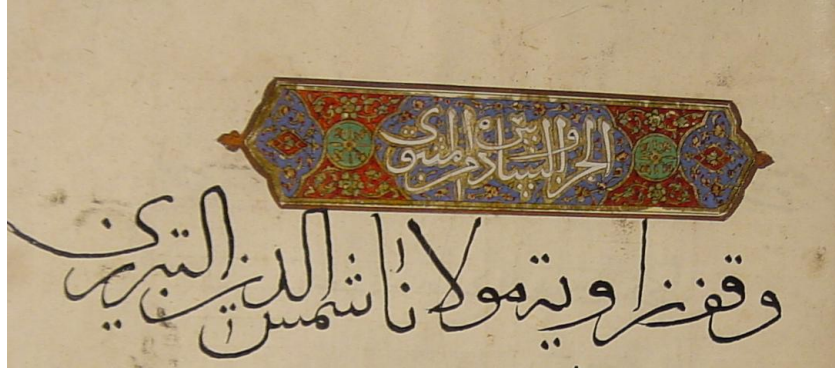 الجزو السادس من المثنوى
وقف زاوية مولانا شمس الدين التبريزى